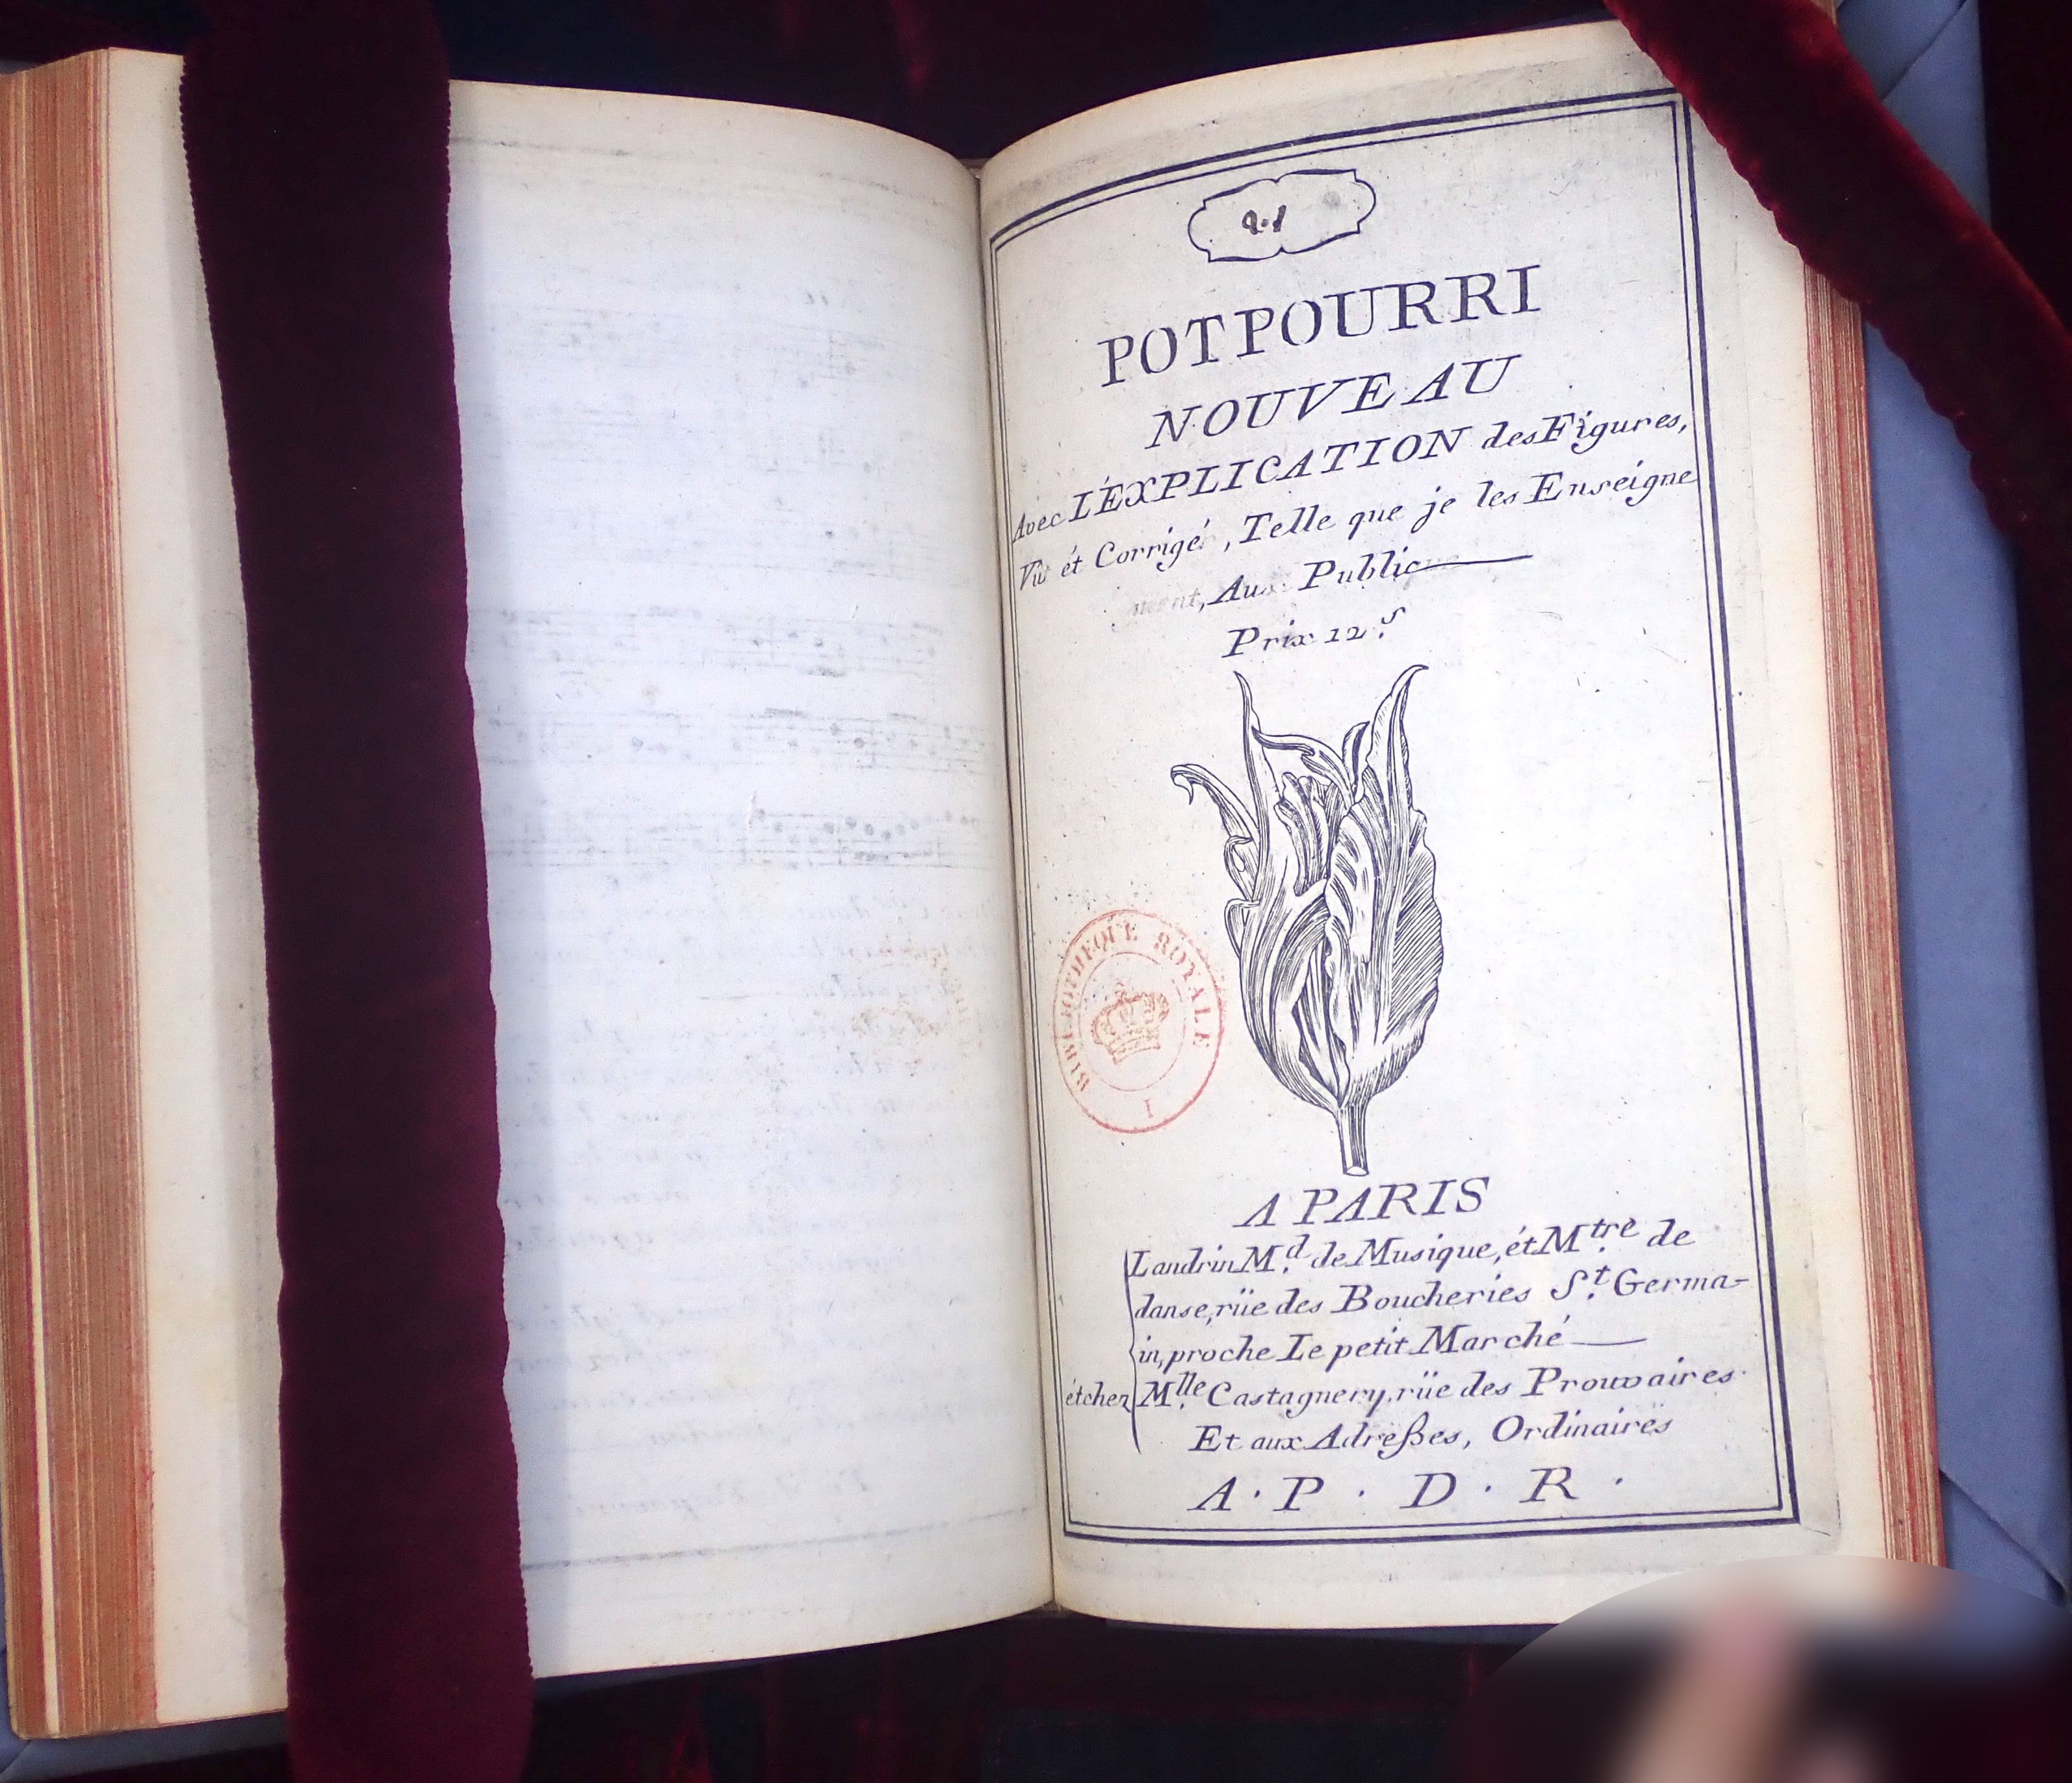 POTPOURRI
NOUVEAU
Avec L'ÉXPLICATION des Figures,
Vû ét Corrigé, Telle que je les Enseigne
ment, Aux Public
Prix 12.s
BIBLIOTHEQUE ROYALE
I
A PARIS
Landrin M.d de Musique, ét M.tre de
danse, rüe des Boucheries S.t Germa-
in, proche Le petit Marché
ét chez M.lle Castagnery, rüe des Prouvaires
Et aux Adreßes, Ordinaires
A. P. D. R.